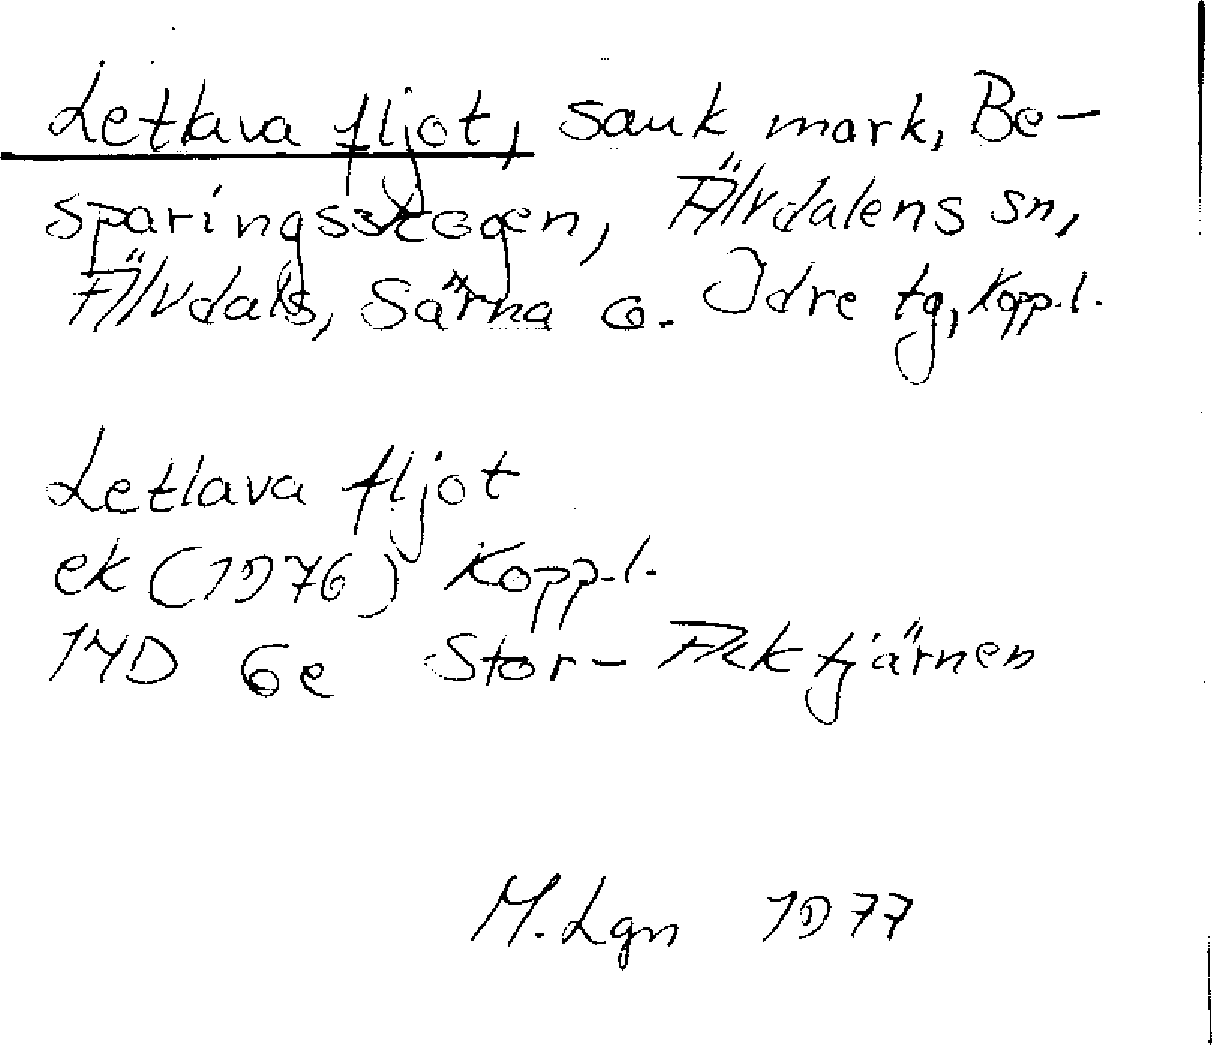 Letlava fljot, sank mark, Be-
sparingsskogen, Älvdalens sn,
Älvdals, Särna o. Idre tg, Kopp.l.
Letlava fljot
ek (1976) Kopp.l.
14D 6e Stor-        tjärnen
M. Lgn 1977